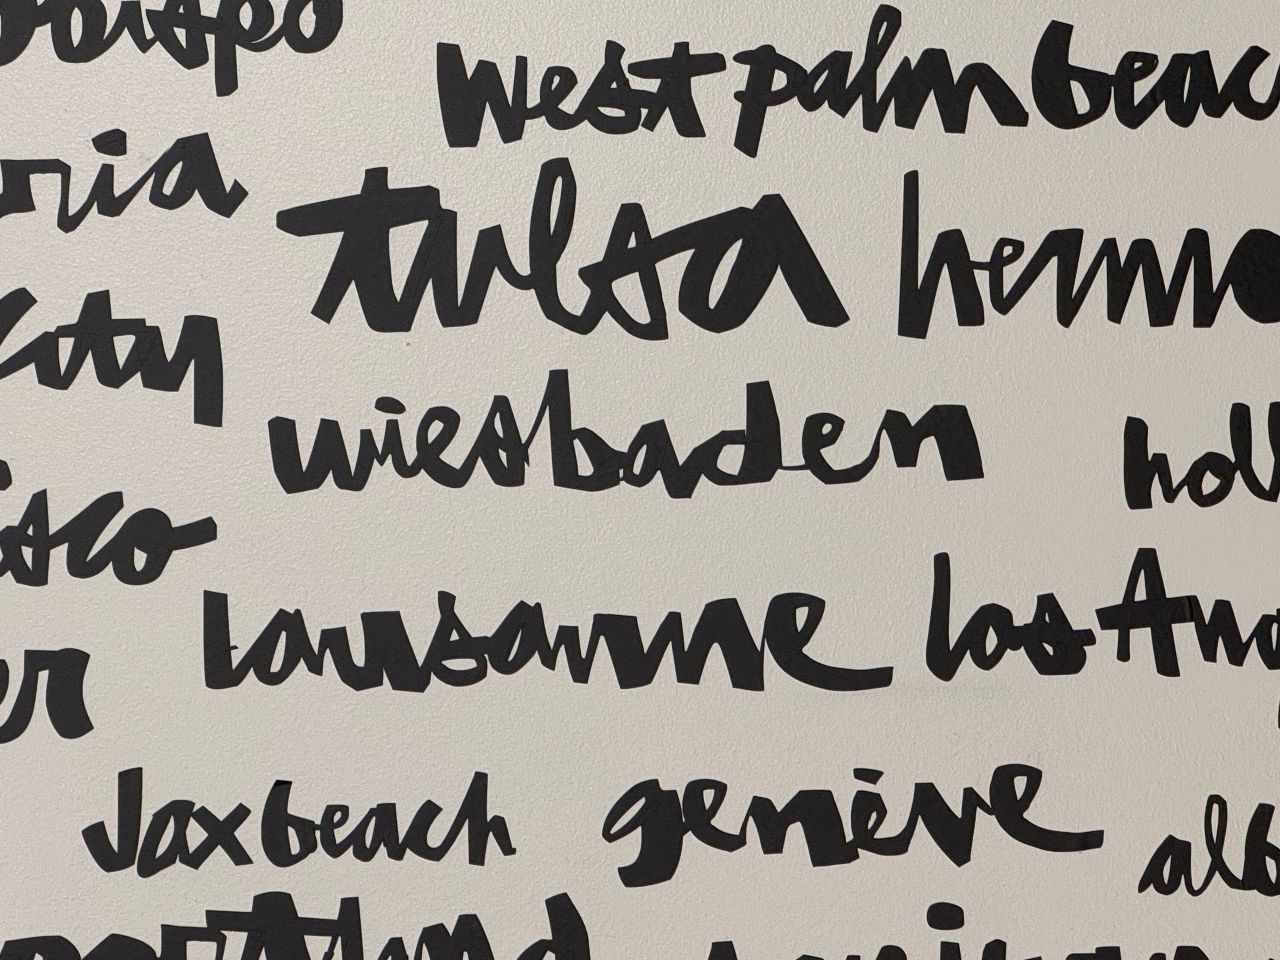 obispo
west palm beac
ria
tulsa hermo
city
wiesbaden
holl
isco
lausanne los Ang
er
Jaxbeach genève
alb
portland